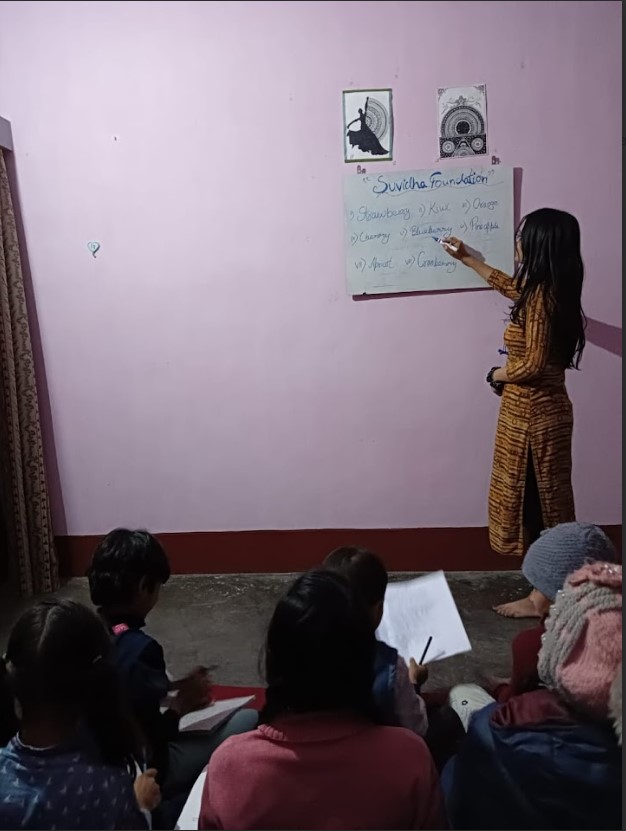 "Suvidha Foundation"
i) Strawberry ii) Kiwi iii) Orange
iv) v) Blueberry vi) Pineapple
vii) Apricot viii)